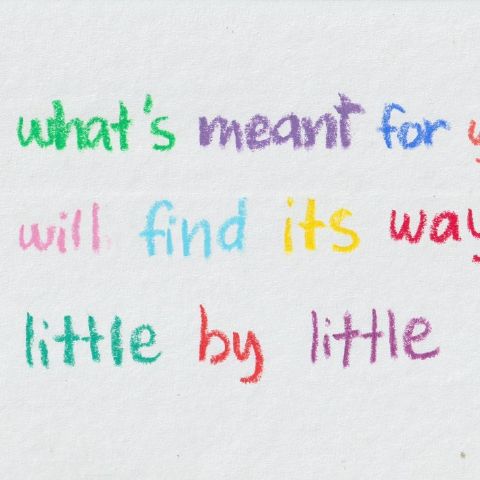 what's meant for y
will find its way
little by little